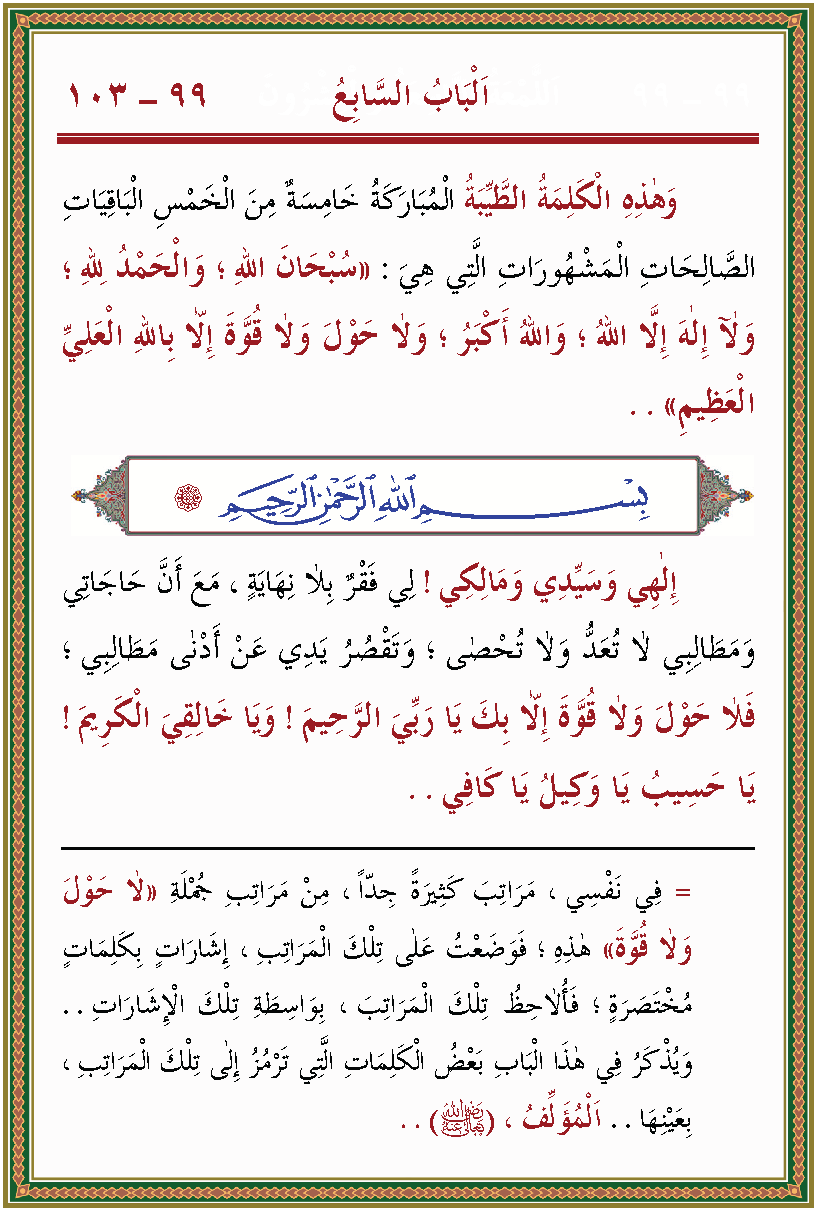 اَلْبَابُ السَّابِعُ ٩٩ – ١٠٣
وَهٰذِهِ الْكَلِمَةُ الطَّيِّبَةُ الْمُبَارَكَةُ خَامِسَةٌ مِنَ الْخَمْسِ الْبَاقِيَاتِ
الصَّالِحَاتِ الْمَشْهُورَاتِ الَّتِي هِيَ : «سُبْحَانَ اللهِ ؛ وَالْحَمْدُ لِلهِ ؛
وَلَآ إِلٰهَ إِلَّا اللهُ ؛ وَاللهُ أَكْبَرُ ؛ وَلَا حَوْلَ وَلَا قُوَّةَ إِلَّا بِاللهِ الْعَلِيِّ
الْعَظِيمِ» . .
بِسْمِ اللهِ الرَّحْمٰنِ الرَّحِيمِ
إِلٰهِي وَسَيِّدِي وَمَالِكِي ! لِي فَقْرٌ بِلَا نِهَايَةٍ ، مَعَ أَنَّ حَاجَاتِي
وَمَطَالِبِي لَا تُعَدُّ وَلَا تُحْصٰى ؛ وَتَقْصُرُ يَدِي عَنْ أَدْنٰى مَطَالِبِي ؛
فَلَا حَوْلَ وَلَا قُوَّةَ إِلَّا بِكَ يَا رَبِّيَ الرَّحِيمَ ! وَيَا خَالِقِيَ الْكَرِيمَ !
يَا حَسِيبُ يَا وَكِيلُ يَا كَافِي . .
= فِي نَفْسِي ، مَرَاتِبَ كَثِيرَةً جِدّاً ، مِنْ مَرَاتِبِ جُمْلَةِ «لَا حَوْلَ
وَلَا قُوَّةَ» هٰذِهِ ؛ فَوَضَعْتُ عَلٰى تِلْكَ الْمَرَاتِبِ ، إِشَارَاتٍ بِكَلِمَاتٍ
مُخْتَصَرَةٍ ؛ فَأُلَاحِظُ تِلْكَ الْمَرَاتِبَ ، بِوَاسِطَةِ تِلْكَ الْإِشَارَاتِ . .
وَيُذْكَرُ فِي هٰذَا الْبَابِ بَعْضُ الْكَلِمَاتِ الَّتِي تَرْمُزُ إِلٰى تِلْكَ الْمَرَاتِبِ ،
بِعَيْنِهَا . . اَلْمُؤَلِّفُ ، (رَضِيَ اللهُ تَعَالَى عَنْهُ) . .